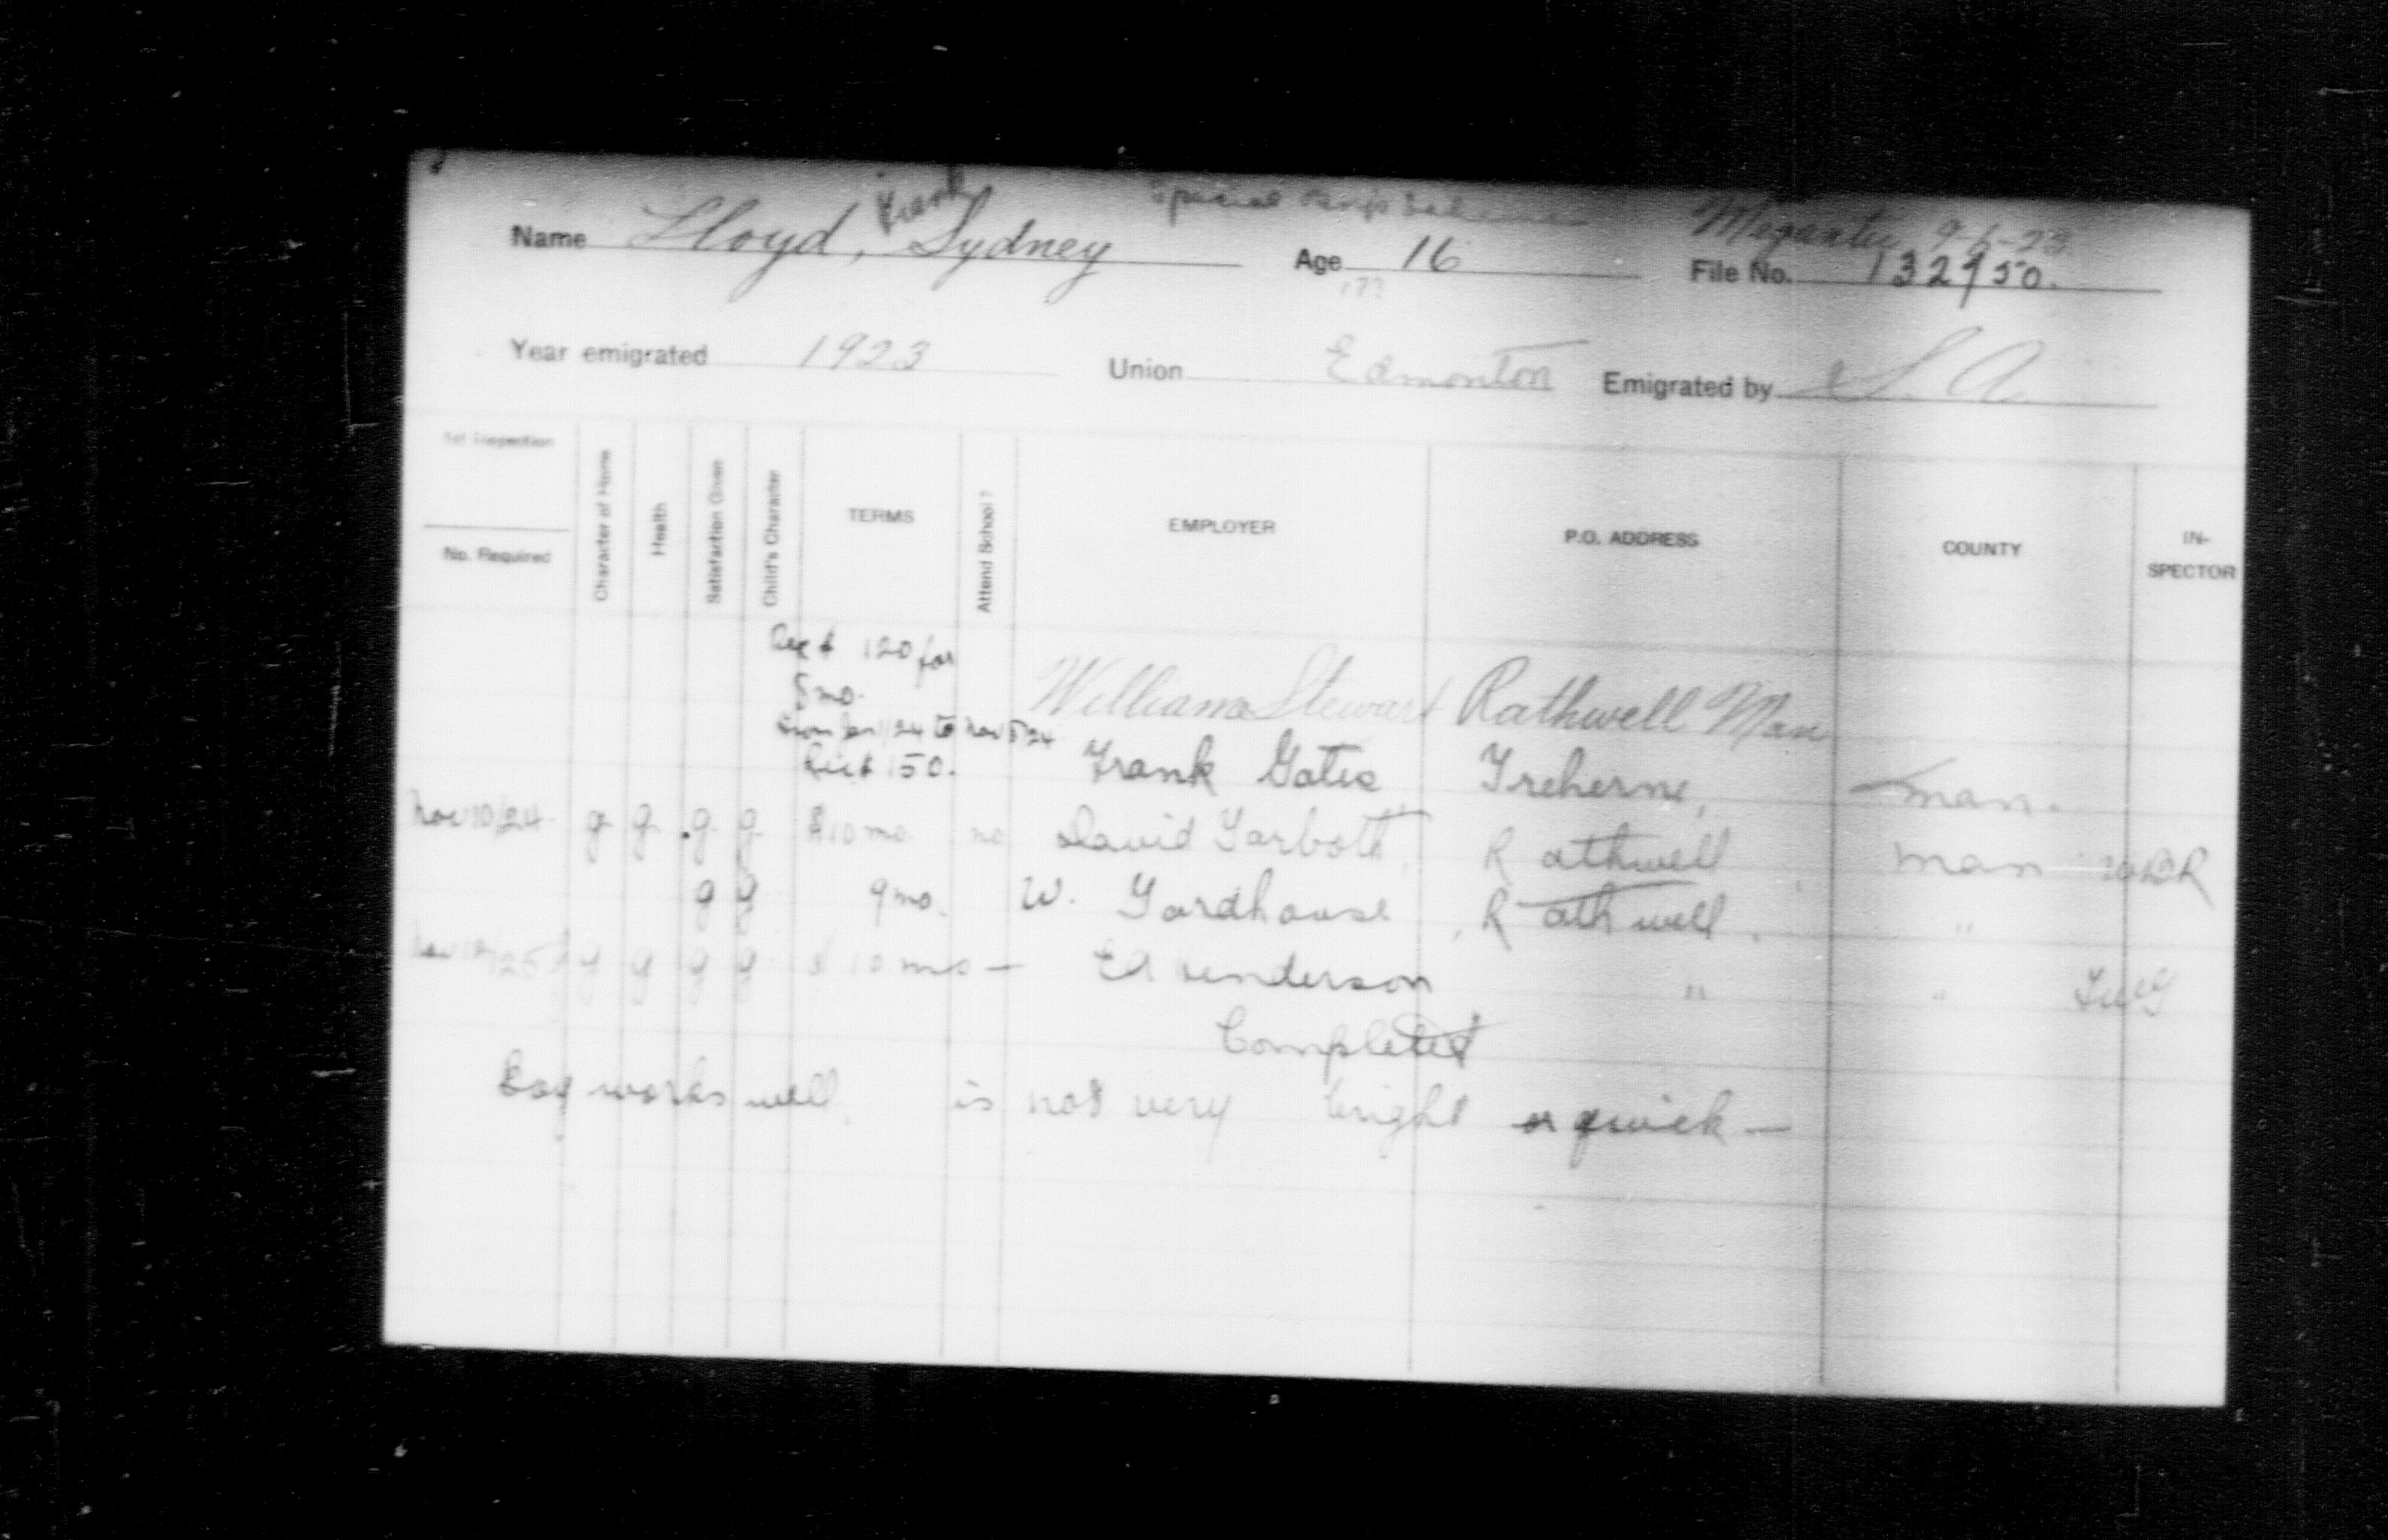 Frank Special Scheme Megantic 9-6-23
Name Lloyd, Sydney Age 16 File No. 132950.
Year emigrated 1923 Union Edmonton Emigrated by S.A.
1st Inspection
No. Required
Character of Home
Health
Satisfaction Given
Child's Character
TERMS
Attend School?
EMPLOYER
P.O. ADDRESS
COUNTY
IN-
SPECTOR
Rec $ 120 for
8 mo.
William Stewart Rathwell Man
24 to Nov 5 24
Rec $ 150. Frank Gates Treherne, Man.
Nov 10/24 g g g g $10 mo. no David Tarbott Rathwell Man WRR
g g 9 mo. W. Gardhouse Rathwell. "
/25 g g g g $ 10 mo — Ed Henderson " "
Completed
Boy works well is not very bright or quick —